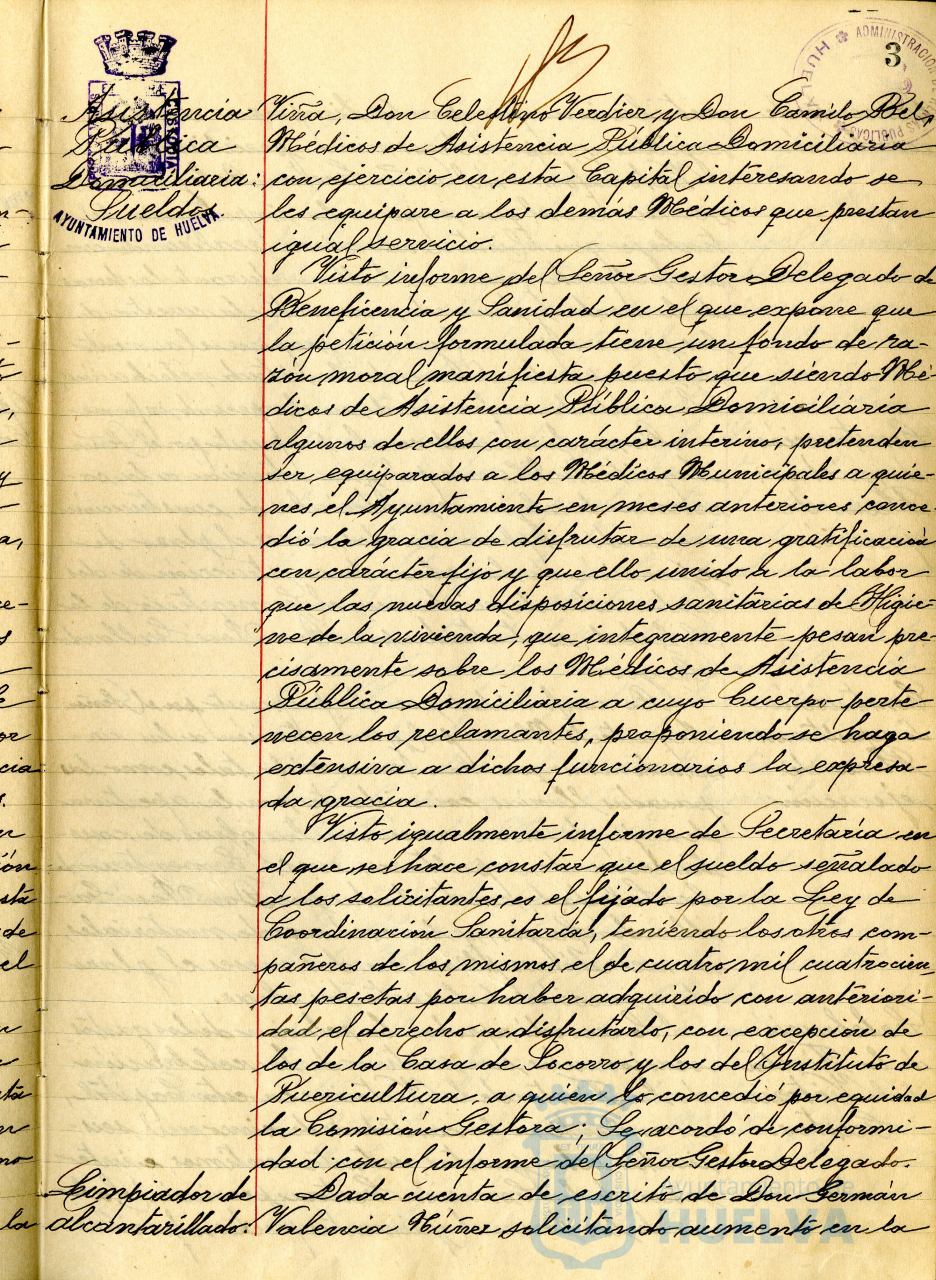 3
ADMINISTRACION
HUE
PUBLICAS
Asistencia
Pública
Domiciliaria:
Sueldos
CUSTODIA
AYUNTAMIENTO DE HUELVA.
Viña, Don Celestino Verdier y Don Camilo Bel
Médicos de Asistencia Pública Domiciliaria
con ejercicio en esta Capital interesando se
les equipare a los demás Médicos que prestan
igual servicio.
Visto informe del Señor Gestor Delegado de
Beneficencia y Sanidad en el que expone que
la petición formulada tiene un fondo de ra-
zón moral manifiesta puesto que siendo Mé-
dicos de Asistencia Pública Domiciliaria
algunos de ellos con carácter interino, pretenden
ser equiparados a los Médicos Municipales a quie-
nes el Ayuntamiento en meses anteriores conce-
dió la gracia de disfrutar de una gratificación
con carácter fijo y que ello unido a la labor
que las nuevas disposiciones sanitarias de Higie-
ne de la vivienda, que integramente pesan pre-
cisamente sobre los Médicos de Asistencia
Pública Domiciliaria a cuyo Cuerpo perte-
necen los reclamantes, proponiendo se haga
extensiva a dichos funcionarios la expresa-
da gracia.
Visto igualmente informe de Secretaría en
el que se hace constar que el sueldo señalado
a los solicitantes, es el fijado por la Ley de
Coordinación Sanitaria, teniendo los otros com-
pañeros de los mismos el de cuatro mil cuatrocien-
tas pesetas por haber adquirido con anteriori-
dad el derecho a disfrutarlo, con excepción de
los de la Casa de Socorro y los del Instituto de
Puericultura, a quien lo concedió por equidad
la Comisión Gestora; Se acordó de conformi-
dad con el informe del Señor Gestor Delegado.
Limpiador de
alcantarillado:
Dada cuenta de escrito de Don Germán
Valencia Núñez solicitando aumento en la
Ayuntamiento de
HUELVA